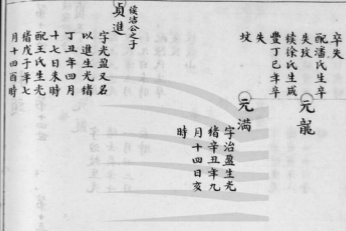 卒失
配潘氏生卒
失坟
續徐氏生咸
豐丁巳年卒
失
坟
元龍
元满
字治盈生光
緒辛丑年九
月十四日亥
時
俊浩公之子
貞進
字光盈又名
以進生光緒
丁丑年四月
十七日未時
配王氏生光
緒戊子年七
月十四酉時